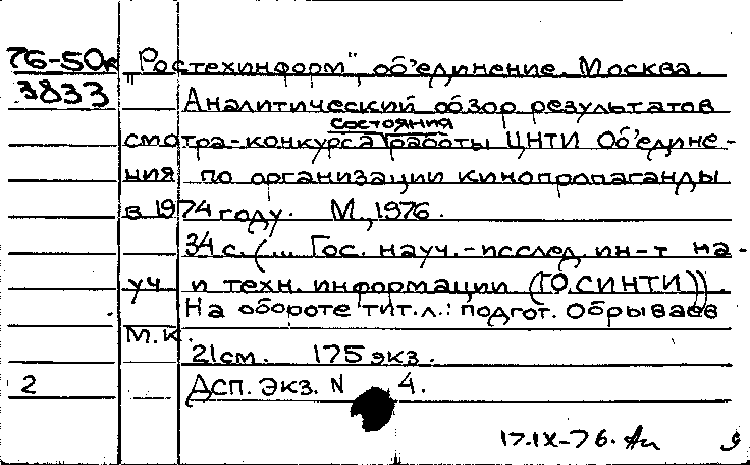 76-50к
3833
"Ростехинформ", об'единение. Москва.
Аналитический обзор результатов
состояния
смотра-конкурса работы ЦНТИ Об'едине-
ния по организации кинопропаганды
в 1974 году. М., 1976.
34 с. (... Гос. науч.-исслед. ин-т на-
уч. и техн. информации (ГОСИНТИ)).
На обороте тит. л.: подгот. Обрываев
М.К.
21 см. 175 экз.
2 Дсп. Экз. N 4.
17.IX-76.